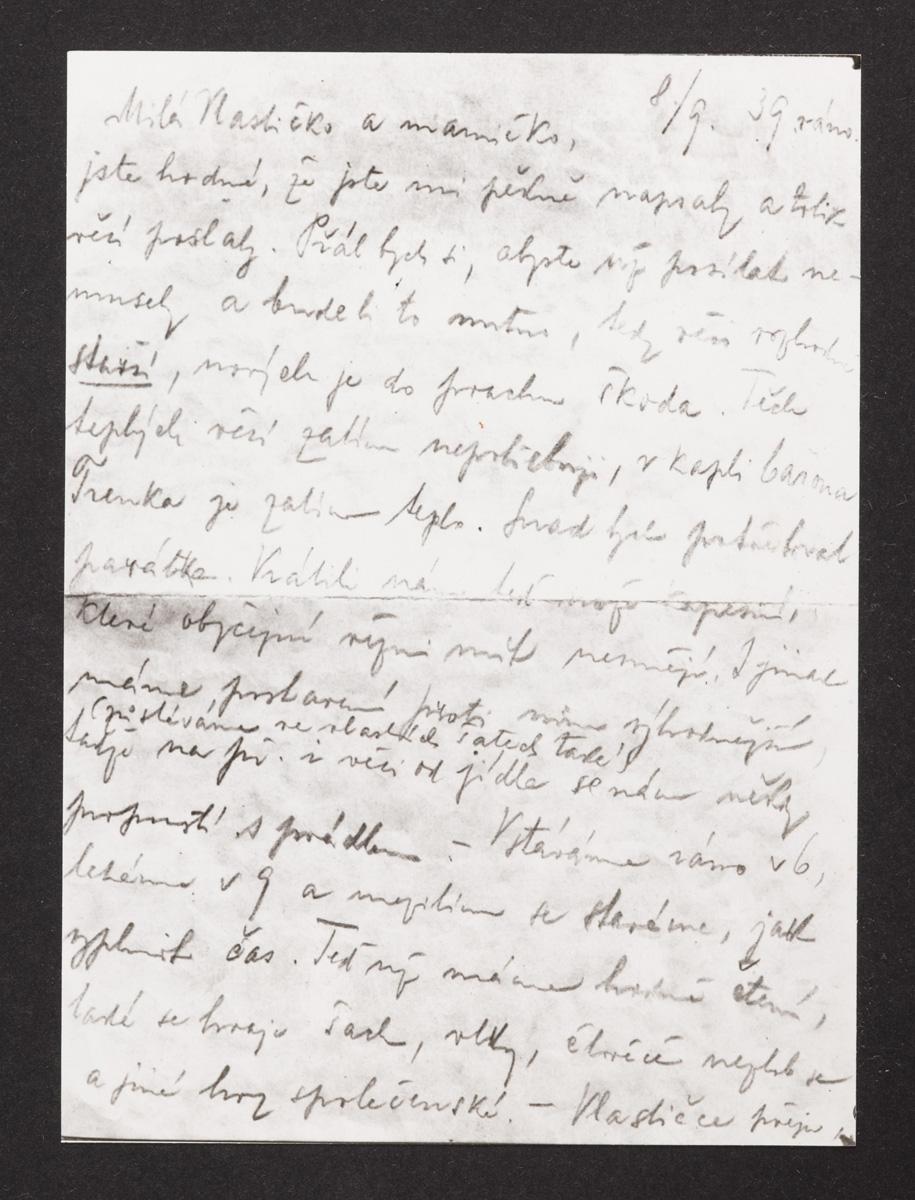 8/9. 39 ráno.
Milá Vlastičko a mamičko,
jste hodné, že jste mi pěkně napsaly a tolik
věcí poslaly. Přál bych si, abyste nic posílat ne-
musely a bude li to nutno, tedy věci rozhodně
starší, nových je do prachu škoda. Těch
teplých věcí zatím nepotřebuji, v kapli barona
Trenka je zatím teplo. Snad bych potřeboval
párátka. Vrátili nám teď
které obyčejní vězni mít nesmějí. I jinak
máme postavení proti nim výhodnější,
(zůstáváme ve vlastních šatech také)
takže na př. i věci od jídla se nám někdy
propustí s prádlem. - Vstáváme ráno v 6,
leháme v 9 a mezitím se staráme, jak
vyplnit čas. Teď máme hodně čtení,
také se hraje šach, vlky, člověče nezlob se
a jiné hry společenské. - Vlastičce přeju,